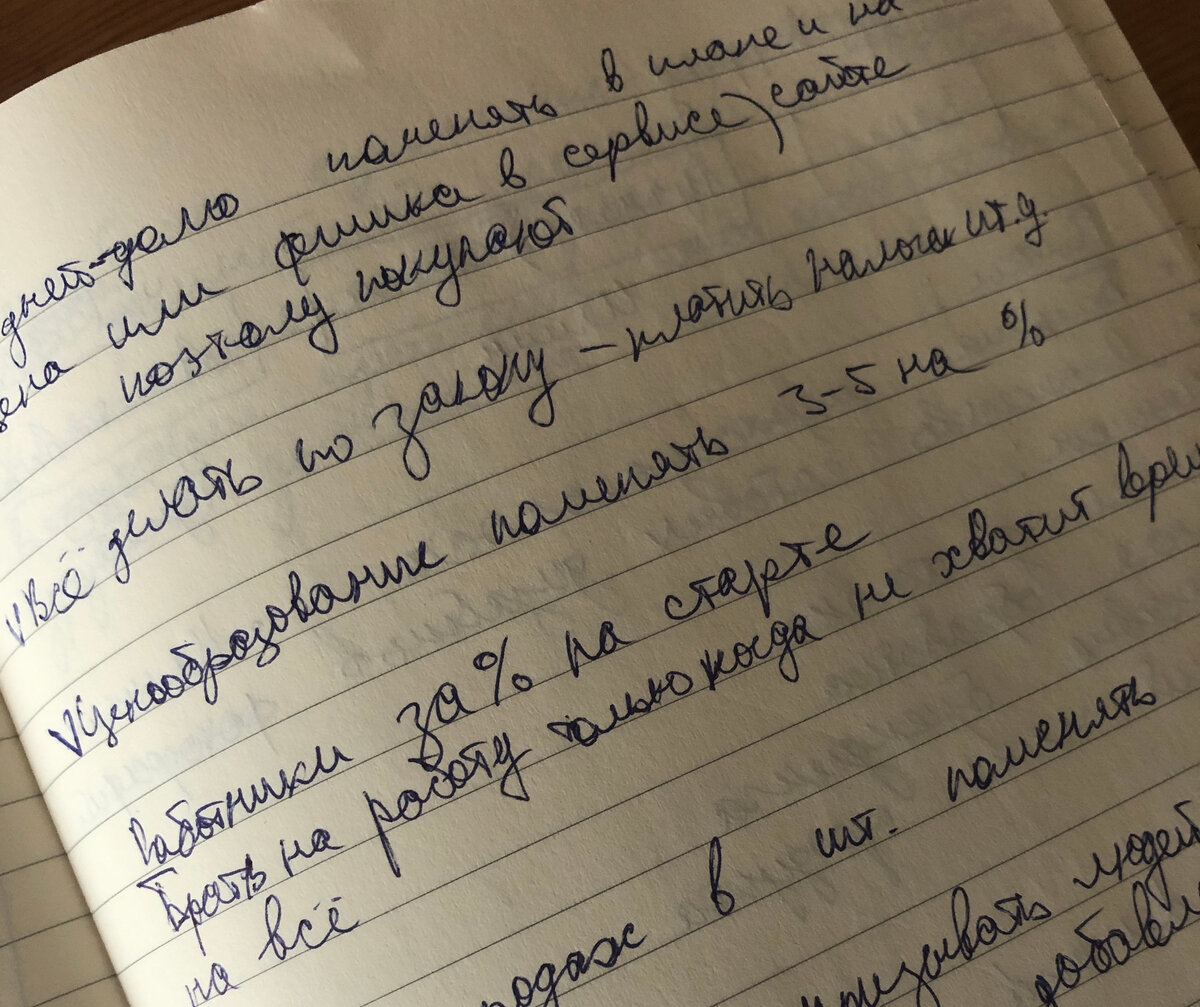 дней-дама поменять в плане и на
цена или фишка в сервисе) сайте
поэтому покупают
√Всё делать по закону – платить налоги и т.д.
√Ценообразование поменять 3-5 на %
Работники за % на старте
Брать на работу только когда не хватит врем
на всё
одаж в шт. поменять
изывать людей
добавл